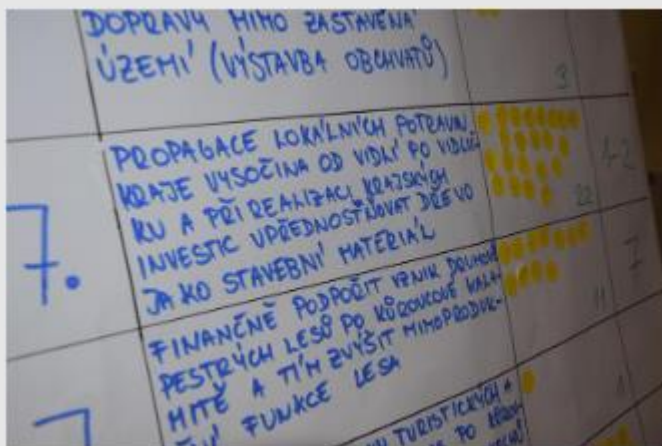 DOPRAVY MIMO ZASTAVĚNÁ
ÚZEMÍ (VÝSTAVBA OBCHVATŮ)
9
7.
PROPAGACE LOKÁLNÍCH POTRAVIN
KRAJE VYSOČINA OD VIDLÍ PO VIDLIČ-
KU A PŘI REALIZACI KRAJSKÝCH
INVESTIC UPŘEDNOSTŇOVAT DŘEVO
JAKO STAVEBNÍ MATERIÁL
22
1-2
FINANČNĚ PODPOŘIT VZNIK DRUHOVĚ
PESTRÝCH LESŮ PO KŮROVCOVÉ KALA-
MITĚ A TÍM ZVÝŠIT MIMOPRODUK-
FUNKCE LESA
11
7
TURISTICKÝCH
PO
1